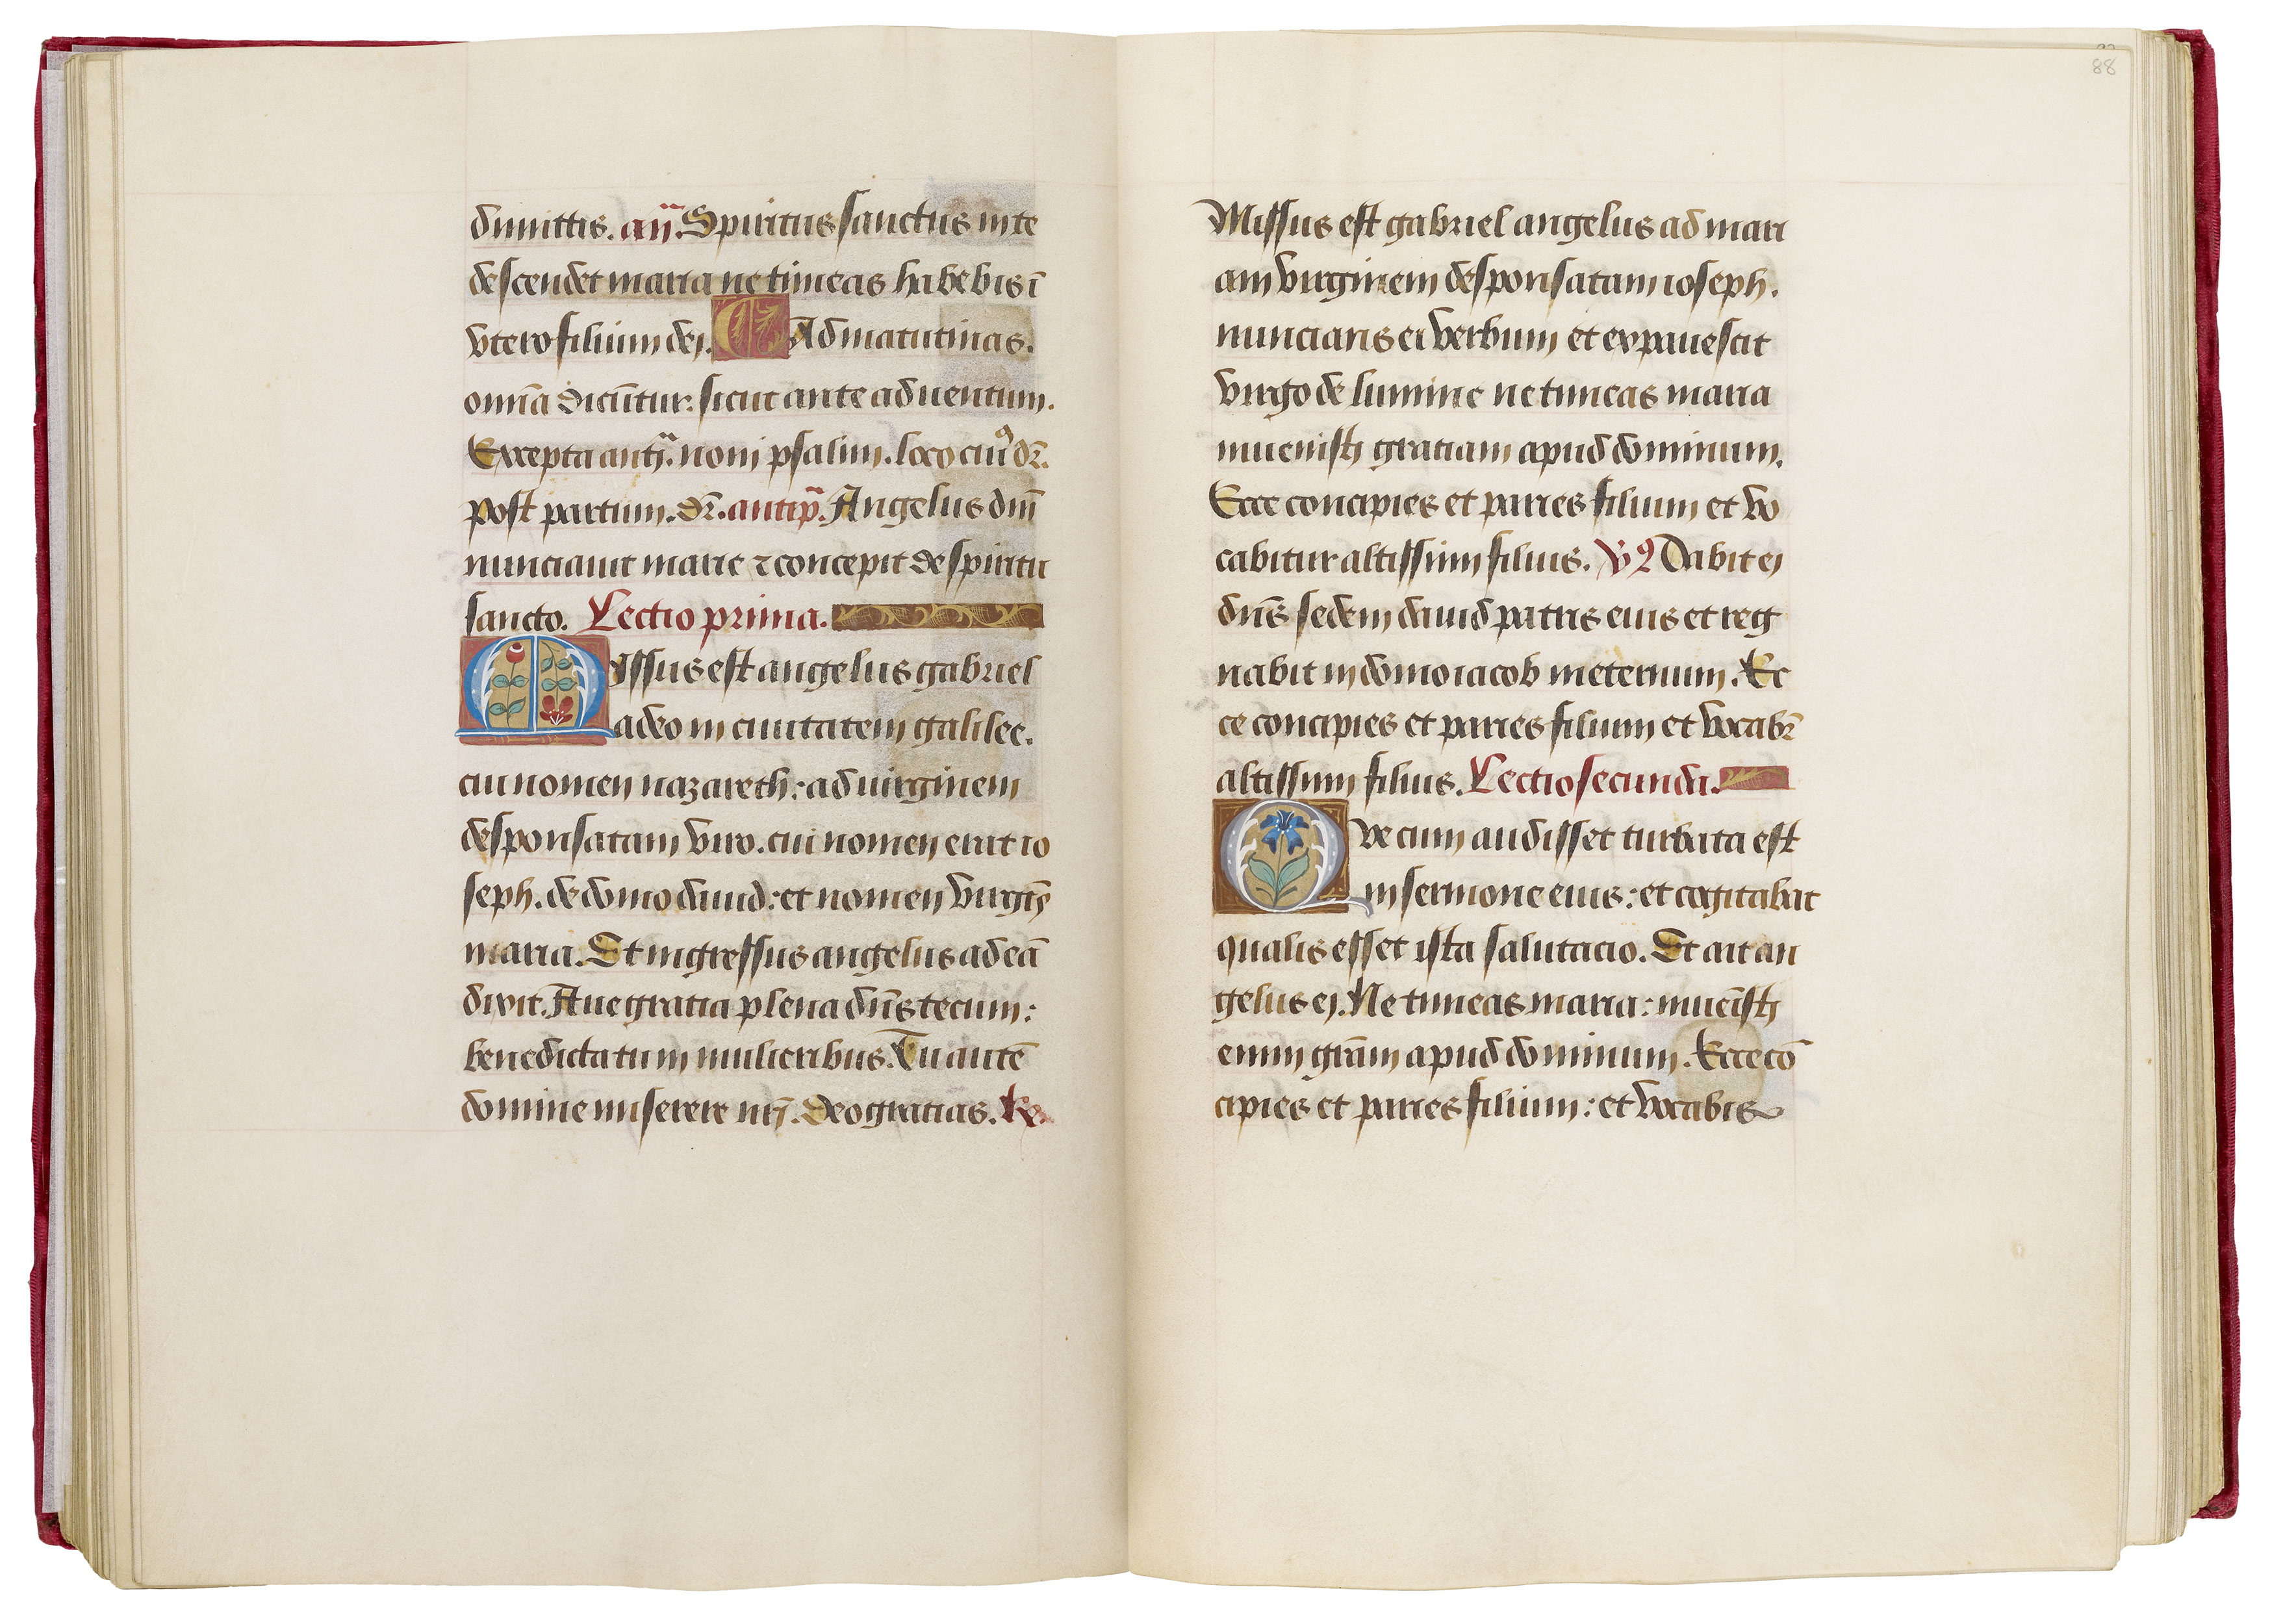 dimittis. añ. Spiritus sanctus in te
descendet maria ne timeas habebis ī
vtero filium dei. Ad matutinas.
om̄ia dicūtur. sicut ante aduentum.
Excepta antꝭ. noni psalmi. loco cuiꝰ dr̄.
post partum. dr̄. antip̄. Angelus dn̄i
nunciauit marie ⁊ concepit de spiritu
sancto. Lectio prima.
Missus est angelus gabriel
a deo in ciuitatem galilee.
cui nomen nazareth: ad uirginem
desponsatam viro. cui nomen erat io
seph. de domo dauid: et nomen virgīs
maria. Et ingressus angelus ad eā
dixit. Aue gratia plena dn̄s tecum:
benedicta tu in mulieribus. Tu autē
domine miserere nr̄i. Deo gratias. ℟.
88
Missus est gabriel angelus ad mari
am virginem desponsatam ioseph.
nuncians ei verbum et expauescit
virgo de lumine ne timeas maria
inuenisti gratiam apud dominum.
Ecce concipies et paries filium et vo
cabitur altissimi filius. Vꝰ Dabit ei
dn̄s sedem dauid patris eius et reg
nabit in domo iacob in eternum. Ec
ce concipies et paries filium et vocabr̄
altissimi filius. Lectio secunda.
Qve cum audisset turbata est
in sermone eius: et cogitabat
qualis esset ista salutacio. Et ait an
gelus ei. Ne timeas maria: inuēisti
enim grām apud dominum. Ecce cō
cipies et paries filium: et vocabis